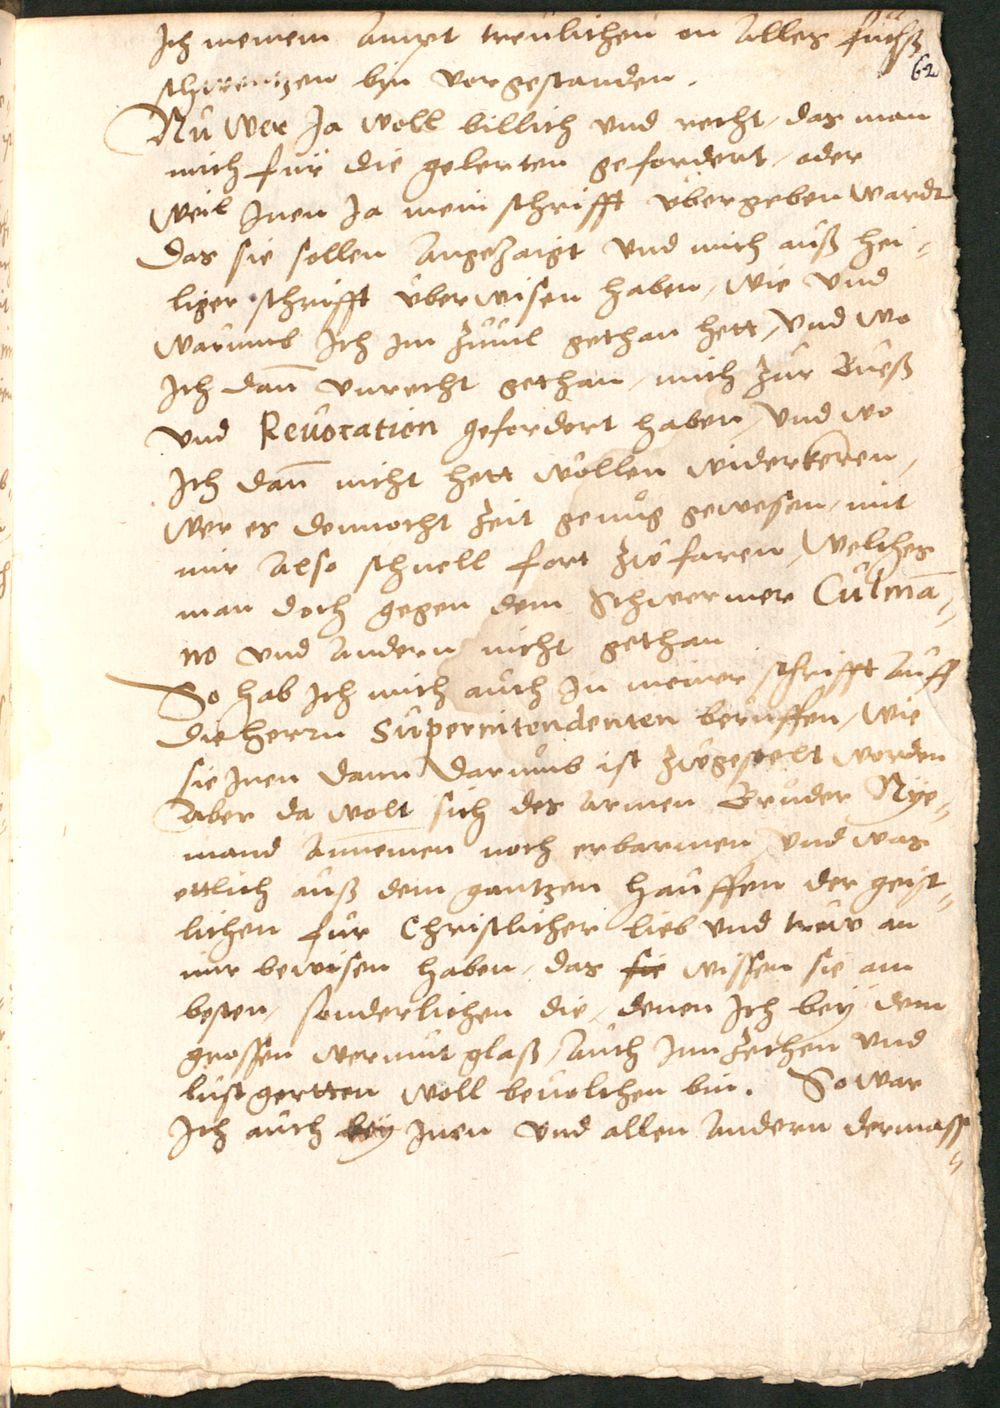 Ich meinem Ampt treulichen on Alles fuchß
62
schwentzen bin vorgestanden.
Nu wer Ja woll billich vnd recht, das man
mich für die gelerten gefordert, oder
weil Inen Ja mein schrifft vbergeben wardt
das sie sollen Angezaigt vnd mich auß hei-
liger schrifft vberwisen haben, wie vnd
warumb Ich im zuuil gethan hett, vnd wo
Ich dann vnrecht gethan, mich zur Bueß
vnd Reuocation gefordert haben, vnd wo
Ich dann nicht hett wöllen widerkeren,
wer es dennocht zeit genug gewesen, mit
mir Also schnell fort zu faren, welches
man doch gegen dem Schwermer Culmā-
no vnd Andern nicht gethan
So hab Ich mich auch In meiner schrifft auff
die herrn Superintendenten beruffen, wie
sie Inen dann darumb ist zugestelt worden
Aber da wolt sich des Armen Bruder Nye-
mand Annemen noch erbarmen, vnd was
ettlich auß dem gantzen hauffen der geist-
lichen für Christlicher lieb vnd trew an
mir bewisen haben, das sie wissen sie am
besten, sonderlichen die, denen Ich bey dem
grossen wermut glaß, Auch Inn Zechen vnd
lustgertten woll beuolchen bin. So war
Ich auch bey Inen vnd allen Andern dermass-